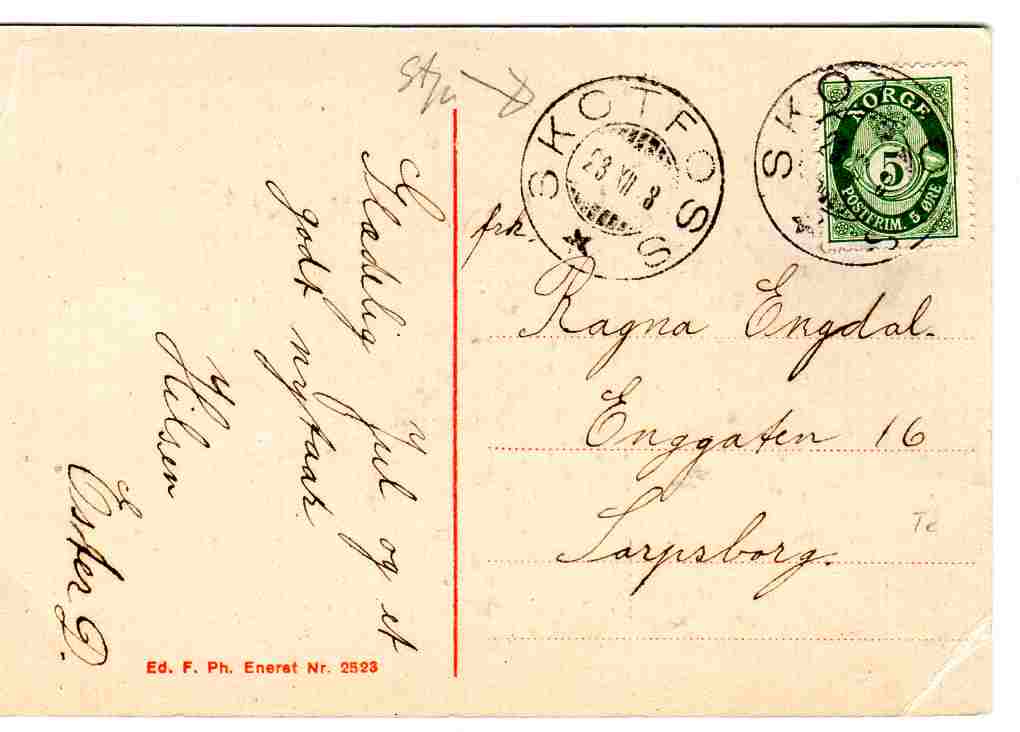 SKOTFOSS
23 XII 8
NORGE
5
POSTFRIM. 5 ØRE
frk.
Ragna Engdal.
Enggaten 16
Sarpsborg.
Glædelig Jul og et
godt nytaar
Hilsen
Ester D.
Ed. F. Ph. Enerat Nr. 2523